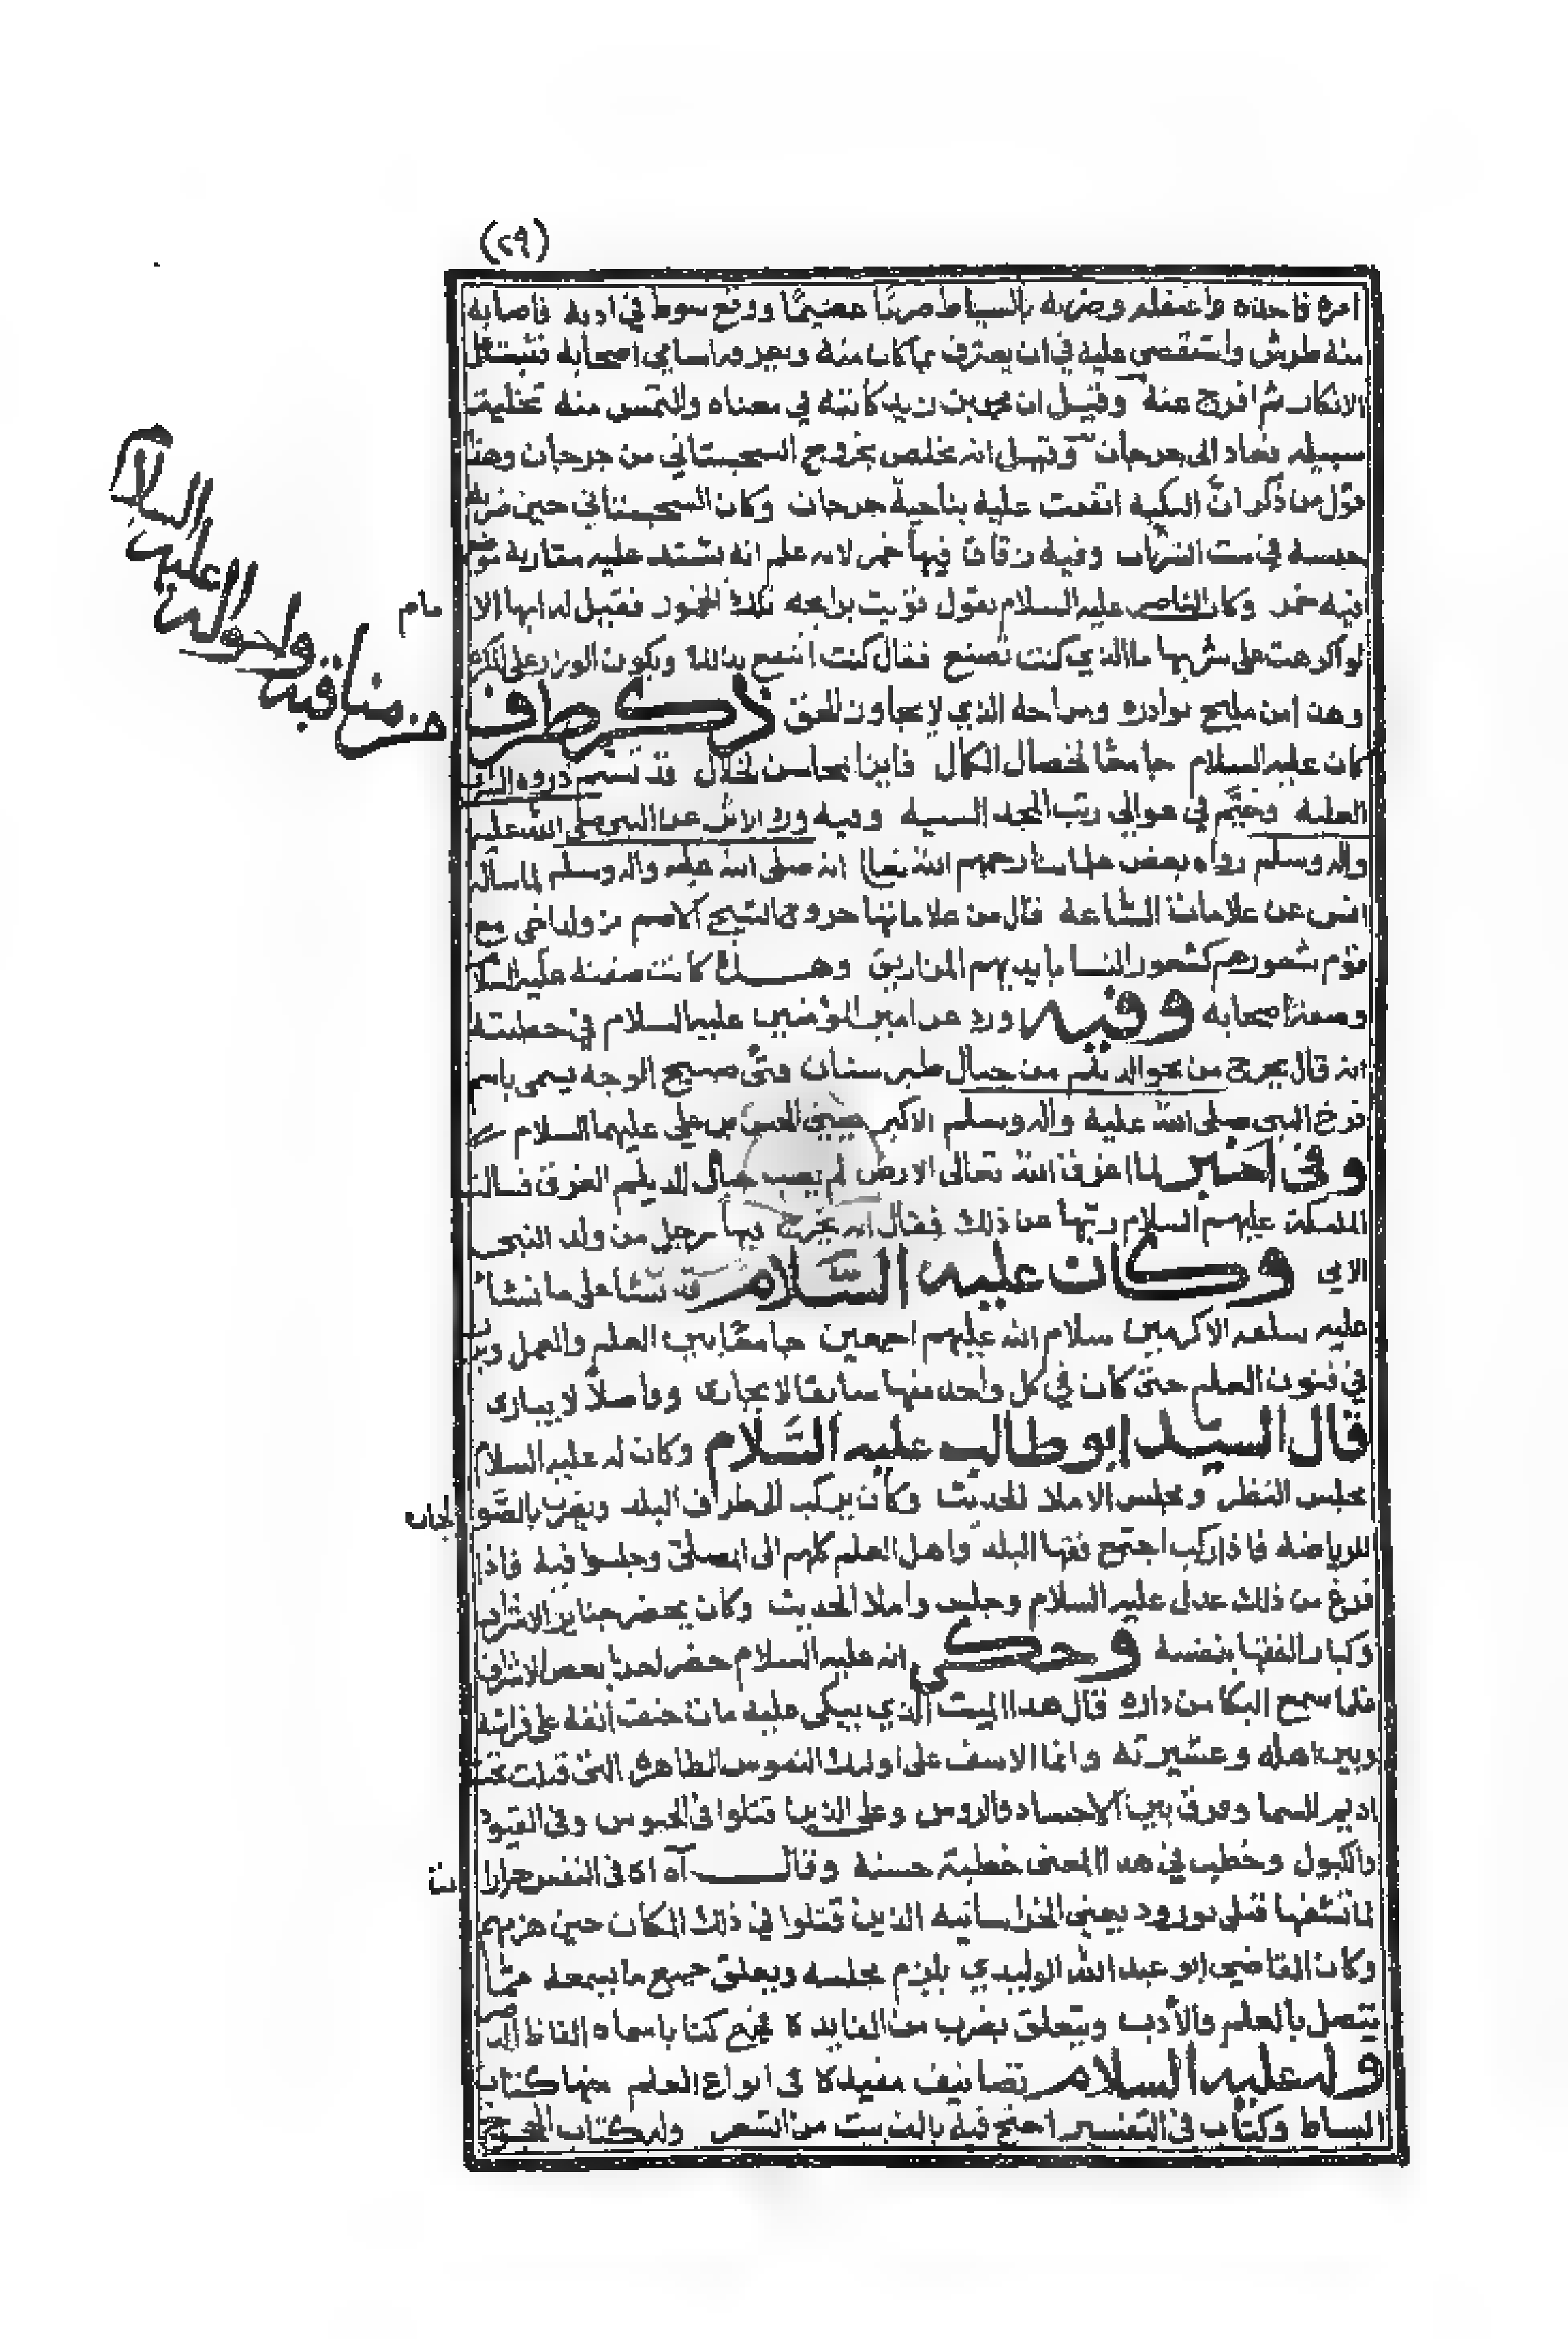 (٢٩)
امره فاخذه واعتقله وضربه بالسياط ضربا عظيمًا ووقع سوط في اذنه فاصابه
منه طرش واستقصى عليه في ان يعترف بما كان منه ويعرفه اسامي اصحابه فثبت على
الانكار ثم افرج عنه وقيل ان محمد بن زيد كاتبه في معناه والتمس منه تخلية
سبيله فعاد الى جرجان وقيل انه تخلص بخروج السجستاني من جرجان وهذا
قول من ذكر ان النكبة اتفقت عليه بناحية جرجان وكان السجستاني حين ضربه
حبسه في بيت الشراب وفيه زقاق فيها خمر لانه علم انه يشتد عليه مقاربة موضع
فيه خمر وكان الناصر عليه السلام يقول قويت برائحة تلك الخمور فقيل له ايها الا مام
لو اكرهت على شربها ما الذي كنت تصنع فقال كنت انتفع بذلك ويكون الوزر على المكره
وهذا من مليح نوادره ومزاحه الذي لا يجاوز الحق ذكر طرف
من مناقبه واحواله عليه السلام
كان عليه السلام جامعًا لخصال الكمال فايزا بمحاسن الخلال قد تسنم ذروة الشرف
العلية وخيّم في عوالي رتب المجد السنيه وفيه ورد الاثر عن النبي صلى الله عليه
واله وسلم رواه بعض علمائنا رحمهم الله تعالى انه صلى الله عليه واله وسلم لما سأله
انس عن علامات الساعة قال من علاماتها خروج الشيخ الاصم من ولد اخي مع
قوم شعورهم كشعور النسا بايديهم المزاريق وهذه كانت صفته عليه السلام
وصفة اصحابه وفيه ورد عن امير المؤمنين عليه السلام في خطبته
انه قال يخرج من نحو الديلم من جبال طبرستان فتى صبيح الوجه يسمى باسم
فرخ النبي صلى الله عليه واله وسلم الاكبر يعني الحسن بن علي عليهما السلام
وفي الخبر لما اغرق الله تعالى الارض لم يصب جبال الديلم الغرق فسالت
الملئكة عليهم السلام ربها عن ذلك فقال انه يخرج فيها رجل من ولد النبي
الامي وكان عليه السلام قد نشا على ما نشا
عليه سلفه الاكرمين سلام الله عليهم اجمعين جامعًا بين العلم والعمل
في فنون العلم حتى كان في كل واحد منها سابقا لا يجارى وفاضلا لا يبارى
قال السيد ابو طالب عليه السلام وكان له عليه السلام
مجلس النظر ومجلس الاملا للحديث وكان يركب الى طرف البلد ويضرب بالصو لجان
للرياضة فاذا ركب اجتمع فقها البلد واهل العلم كلهم الى المصلى وجلسوا فيه فاذا
فرغ من ذلك عدل عليه السلام وجلس واملا الحديث وكان يحضر جنايز الاشراف
وكبار الفقها بنفسه وحكي انه عليه السلام حضر لاحد بعض الاشراف
فلما سمع البكا من داره قال هذا الميت الذي يبكى عليه مات حتف انفه على فراشه
وبين اهله وعشيرته وانما الاسف على اولئك النفوس الطاهرة التي قتلت تحت
اديم السما وفرق بين الاجساد والروس وعلى الذين قتلوا في الحبوس وفي القيود
والكبول وخطب في هذا المعنى خطبة حسنة وقال آه اه في النفس حزازا ت
لم تشفها قتلى بورود يعني الخراسانيه الذين قتلوا في ذلك المكان حين هزمهم
وكان القاضي ابو عبد الله الوليدي يلزم مجلسه ويعلق جميع ما يسمعه مما
يتصل بالعلم والأدب ويتعلق بضرب من الفايدة فجمع كتابا سماه الفاظ الناصر
وله عليه السلام تصانيف مفيدة في انواع العلم منها كتاب
البساط وكتاب في التفسير احتج فيه بالف بيت من الشعر وله كتاب الحجج